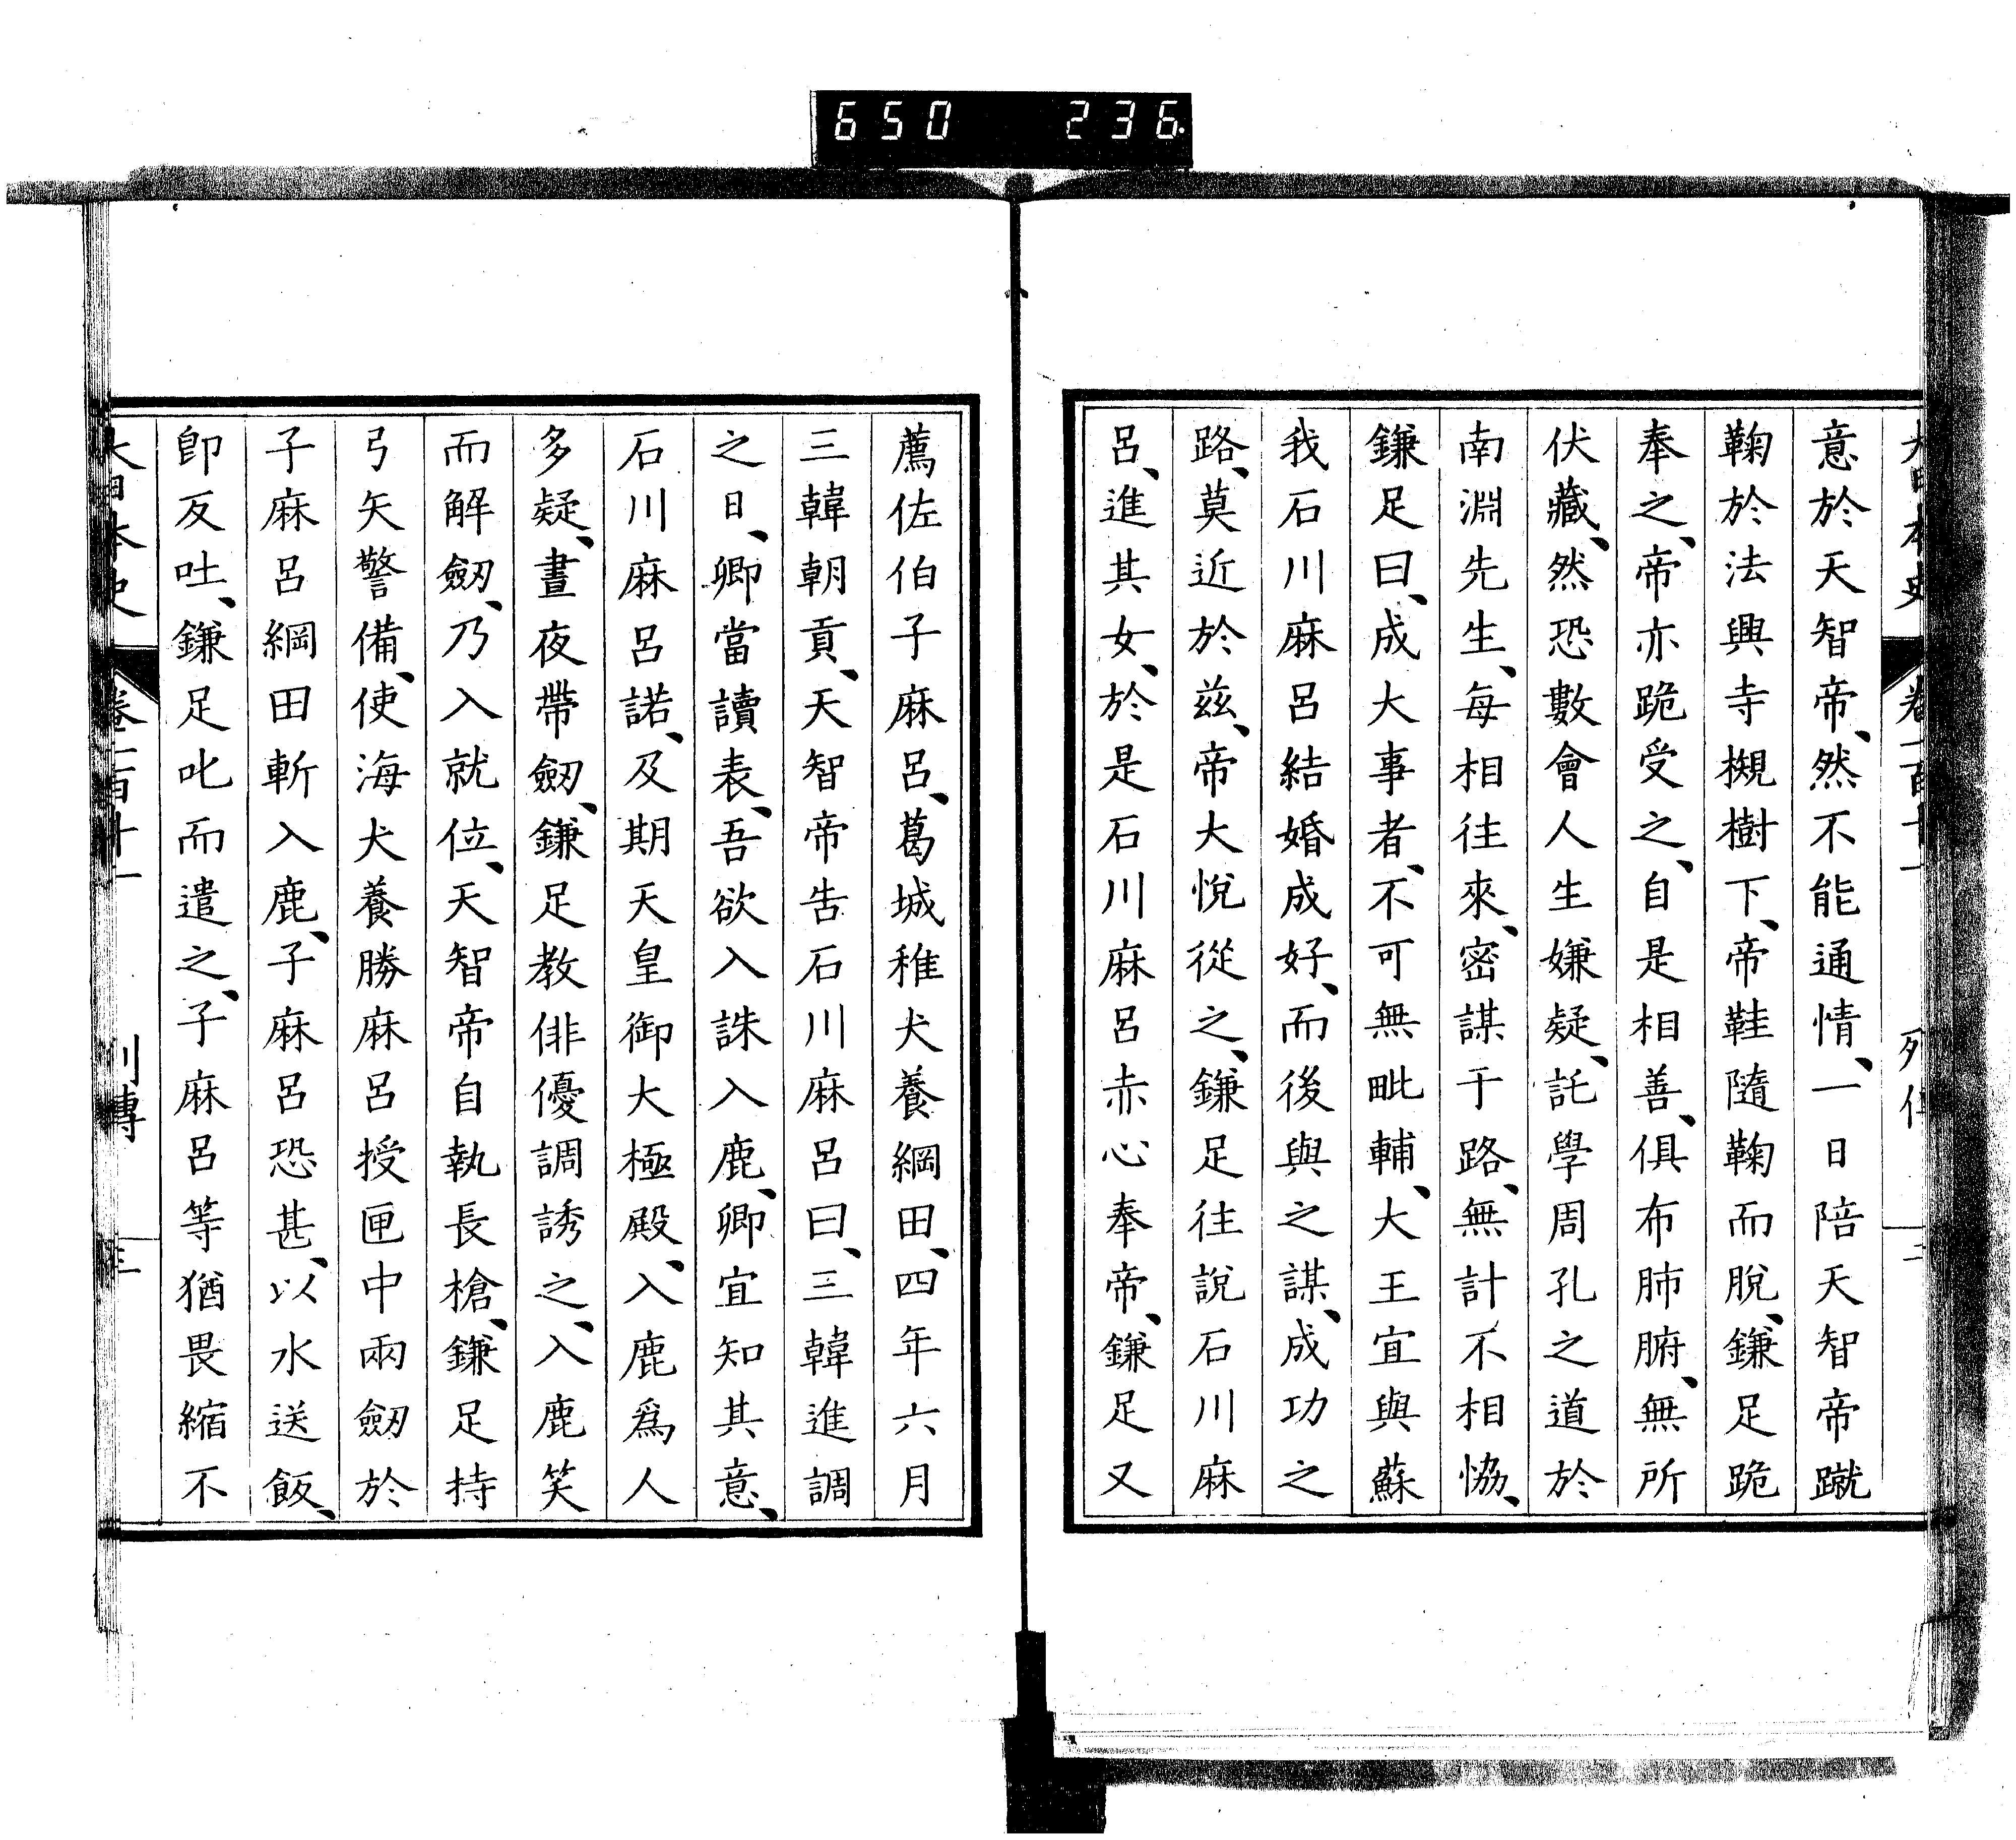 650 236
意於天智帝、然不能通情、一日陪天智帝蹴
鞠於法興寺槻樹下、帝鞋隨鞠而脫、鎌足跪
奉之、帝亦跪受之、自是相善、俱布肺腑、無所
伏藏、然恐數會人生嫌疑、託學周孔之道於
南淵先生、每相往來、密謀于路、無計不相恊、
鎌足曰、成大事者、不可無毗輔、大王宜與蘇
我石川麻呂結婚成好、而後與之謀、成功之
路、莫近於茲、帝大悅從之、鎌足往說石川麻
呂、進其女、於是石川麻呂赤心奉帝、鎌足又
薦佐伯子麻呂、葛城稚犬養綱田、四年六月
三韓朝貢、天智帝告石川麻呂曰、三韓進調
之日、卿當讀表、吾欲入誅入鹿、卿宜知其意、
石川麻呂諾、及期天皇御大極殿、入鹿爲人
多疑、晝夜帶劒、鎌足教俳優調誘之、入鹿笑
而解劒、乃入就位、天智帝自執長槍、鎌足持
弓矢警備、使海犬養勝麻呂授匣中兩劒於
子麻呂綱田斬入鹿、子麻呂恐甚、以水送飯、
卽反吐、鎌足叱而遣之、子麻呂等猶畏縮不
大日本史 卷一百十一 列傳 三